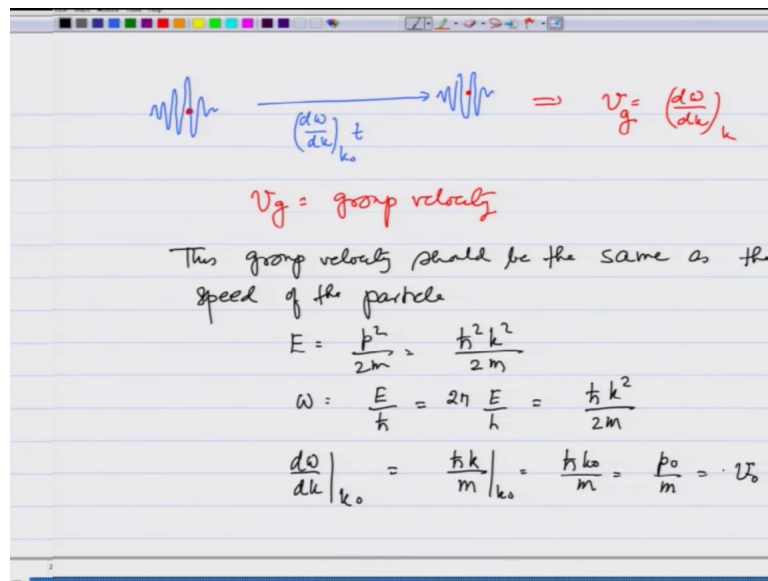 (dω/dk)_k₀ t ⇒ v_g = (dω/dk)_k
v_g = group velocity
This group velocity should be the same as the
speed of the particle
E = p²/2m = ħ²k²/2m
ω = E/ħ = 2π E/h = ħk²/2m
dω/dk |_k₀ = ħk/m |_k₀ = ħk₀/m = p₀/m = v₀
2